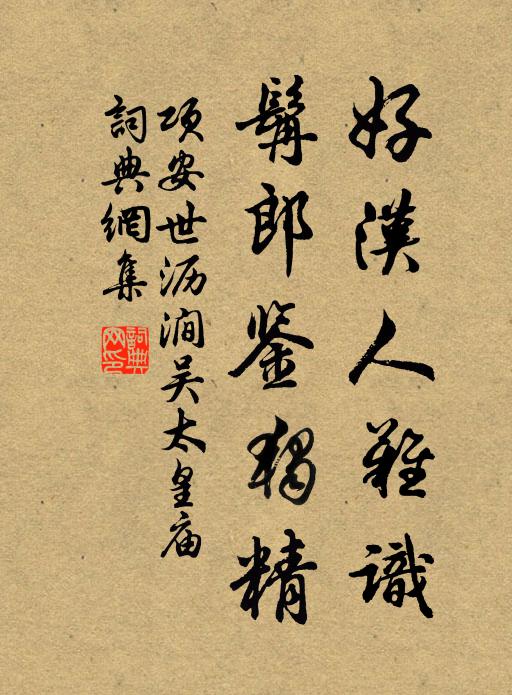 好漢人難識
髯郎鉴獨精
項安世沥澗吴太皇庙
詞典網集
詞典网印